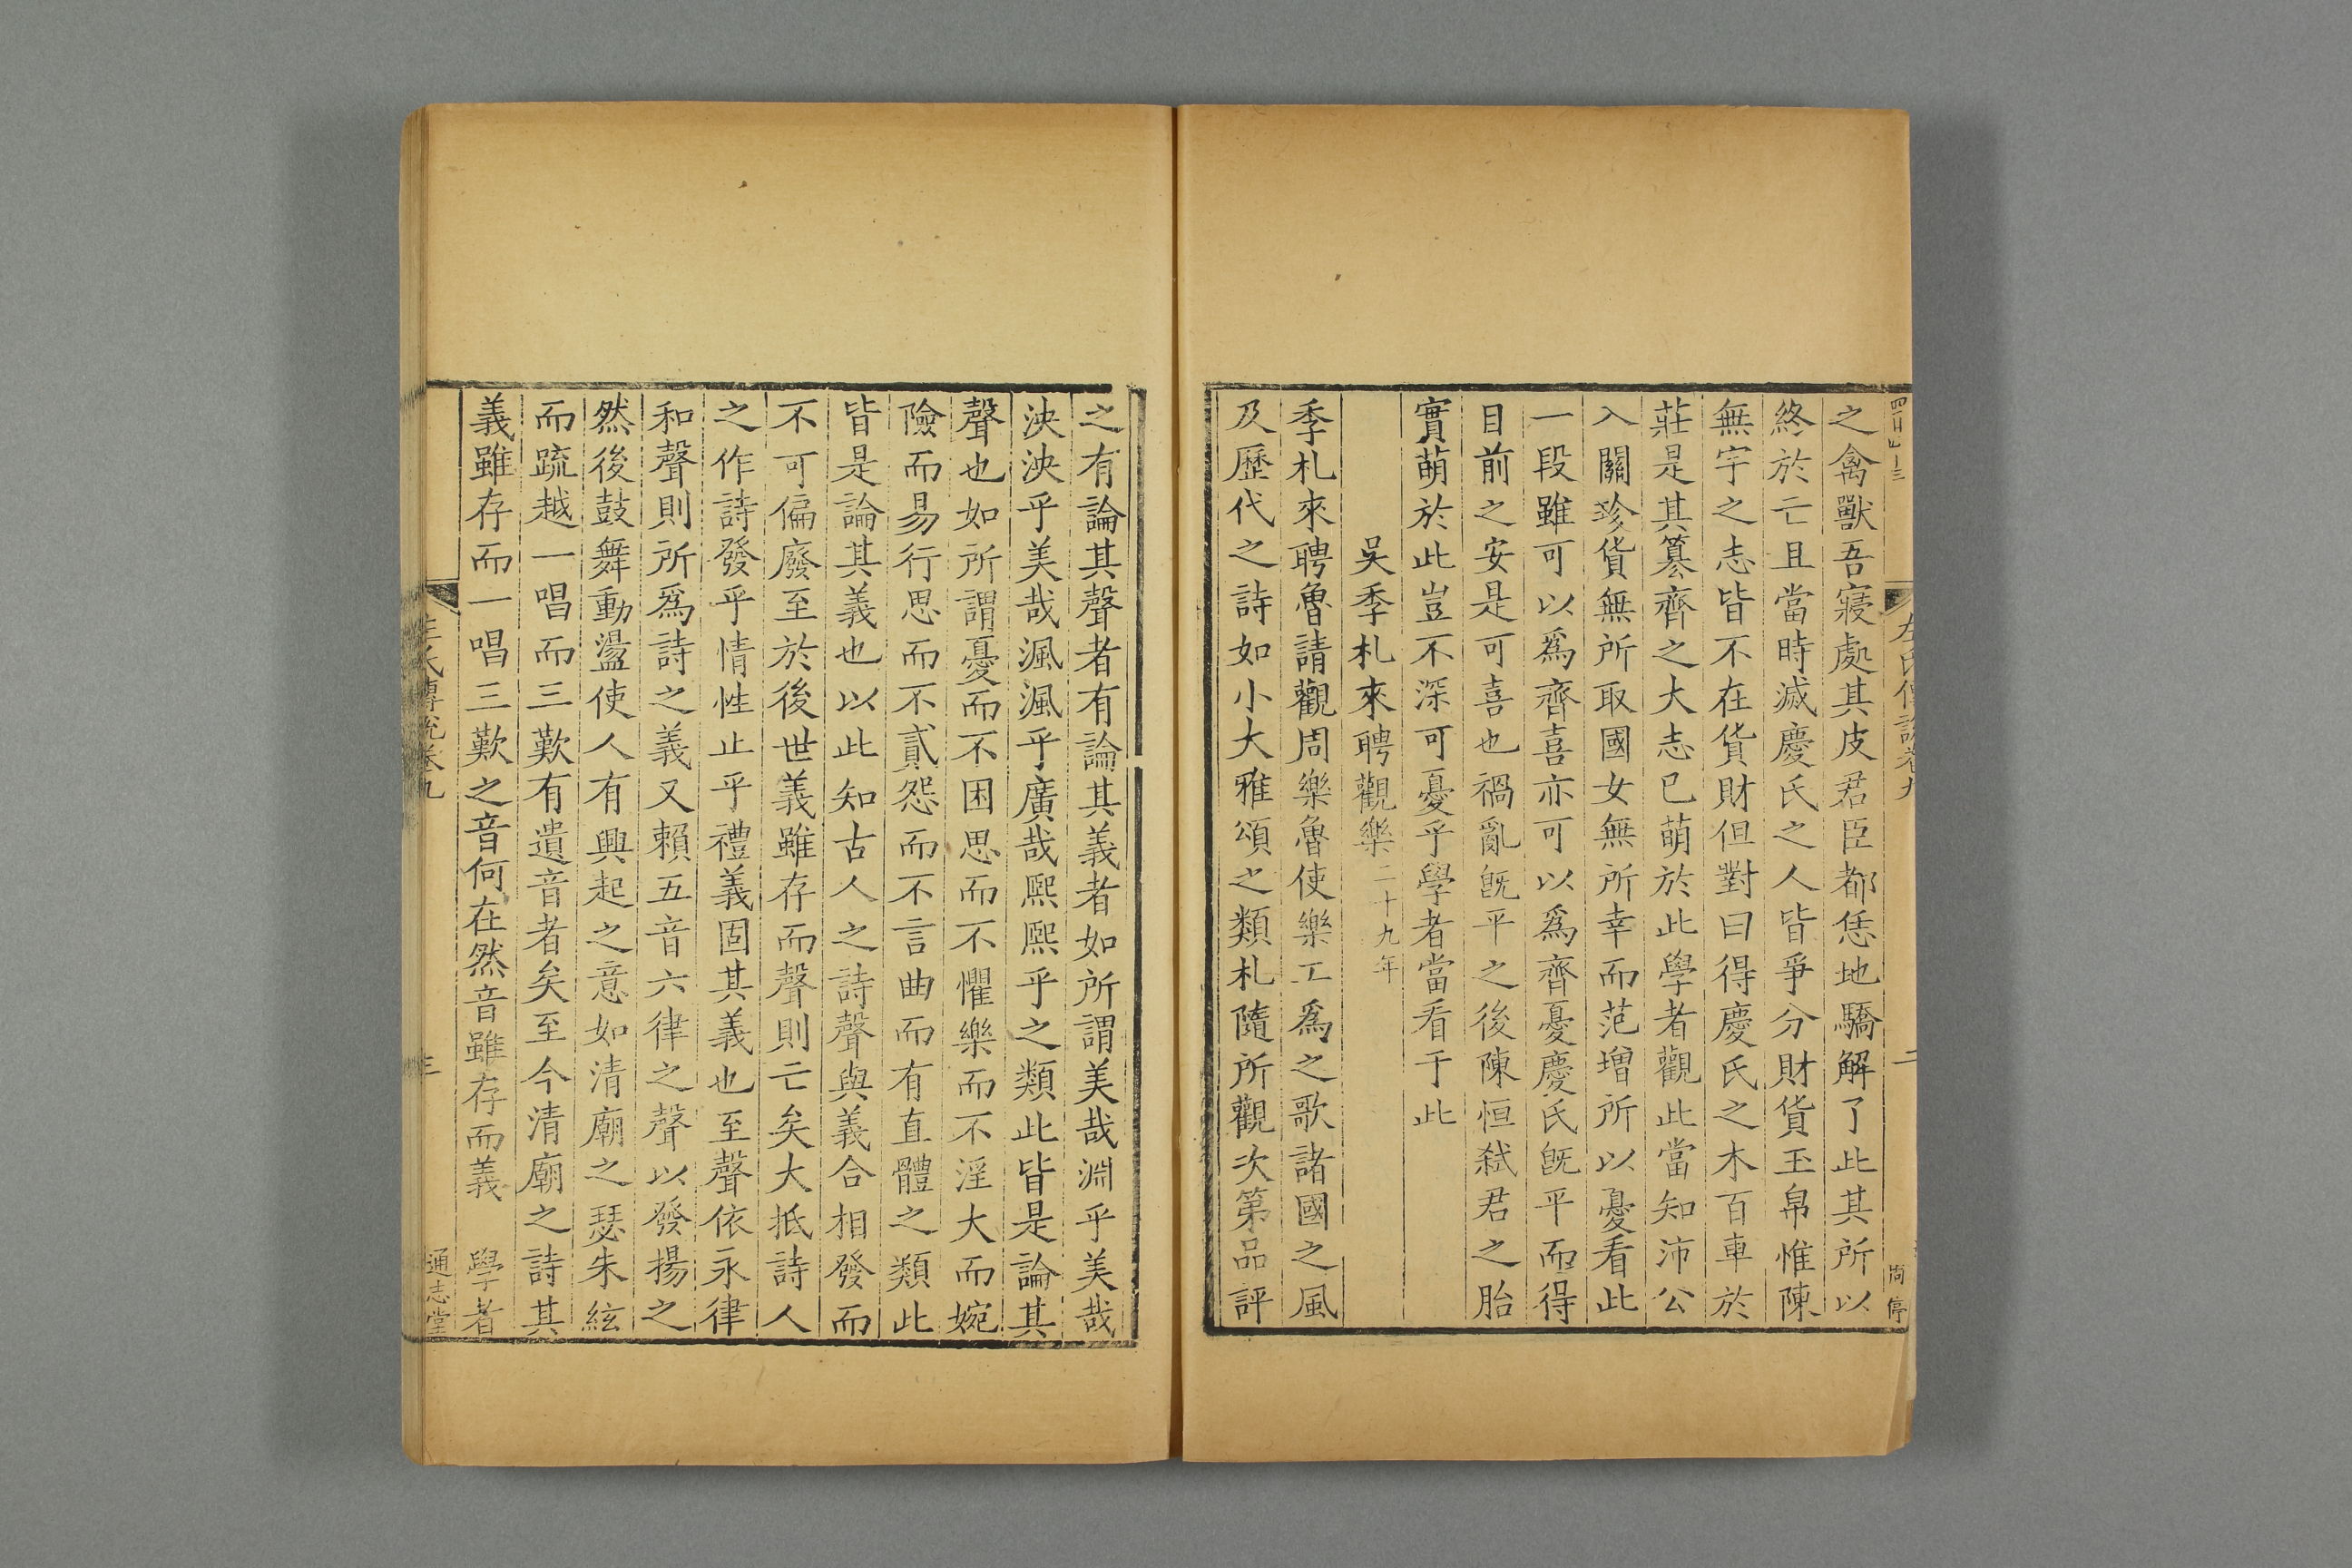 左氏傳說卷九
二
之禽獸吾寢處其皮君臣都恁地驕解了此其所以
終於亡且當時滅慶氏之人皆爭分財貨玉帛惟陳
無宇之志皆不在貨財但對曰得慶氏之木百車於
莊是其篡齊之大志已萌於此學者觀此當知沛公
入關珍貨無所取國女無所幸而范增所以憂看此
一段雖可以爲齊喜亦可以爲齊憂慶氏旣平而得
目前之安是可喜也禍亂旣平之後陳恒弑君之胎
實萌於此豈不深可憂乎學者當看于此
吳季札來聘觀樂二十九年
季札來聘魯請觀周樂魯使樂工爲之歌諸國之風
及歷代之詩如小大雅頌之類札隨所觀次第品評
之有論其聲者有論其義者如所謂美哉淵乎美哉
泱泱乎美哉渢渢乎廣哉熙熙乎之類此皆是論其
聲也如所謂憂而不困思而不懼樂而不淫大而婉
險而易行思而不貳怨而不言曲而有直體之類此
皆是論其義也以此知古人之詩聲與義合相發而
不可偏廢至於後世義雖存而聲則亡矣大抵詩人
之作詩發乎情性止乎禮義固其義也至聲依永律
和聲則所爲詩之義又賴五音六律之聲以發揚之
然後鼓舞動盪使人有興起之意如清廟之瑟朱絃
而疏越一唱而三歎有遺音者矣至今清廟之詩其
義雖存而一唱三歎之音何在然音雖存而義 學者
左氏傳說卷九
三
通志堂